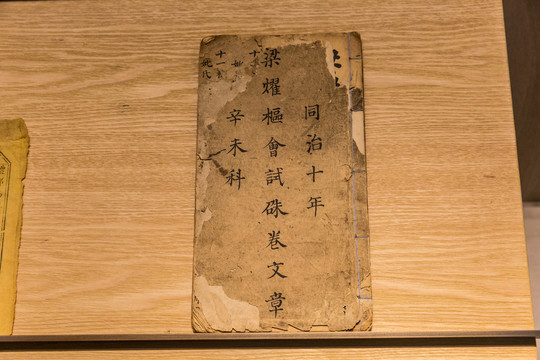 同治十年
梁燿樞會試硃卷文章
辛未科